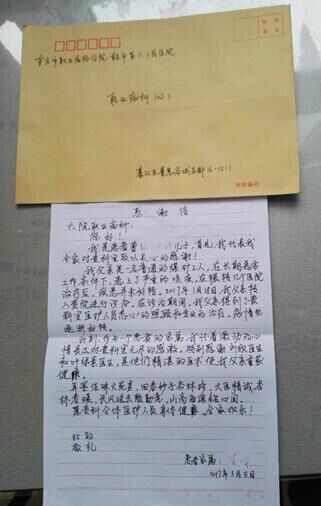 重庆市职业病防治院 重庆市第六人民医院
职业病科(收)
邮政编码
感谢信
六院职业病科:
您好!
我是患者曾 的儿子,首先,我代表我
全家对贵科室致以衷心的感谢!
我父亲是一名普通的煤矿工人,在长期恶劣
工作条件下,患上了严重的咳疾,在辗转几个医院
治疗后,疾患并未好转。2017年1月18日,我父亲转
入贵院进行诊治。在诊治期间,我父亲得到了贵
科室医护人员悉心的照顾和专业的治疗,病情也
逐渐好转。
此刻,作为一个患者的家属,我以无比激动的心
情表达对贵科室无尽的感激,特别感谢刘医生
和叶保素医生,是你们精湛的医术使我父亲重获
健康。
医术精诚
山高海深铭心间。
愿贵科全体医护人员身体健康,合家欢乐!
此致
敬礼
患者家属:
2017年3月5日